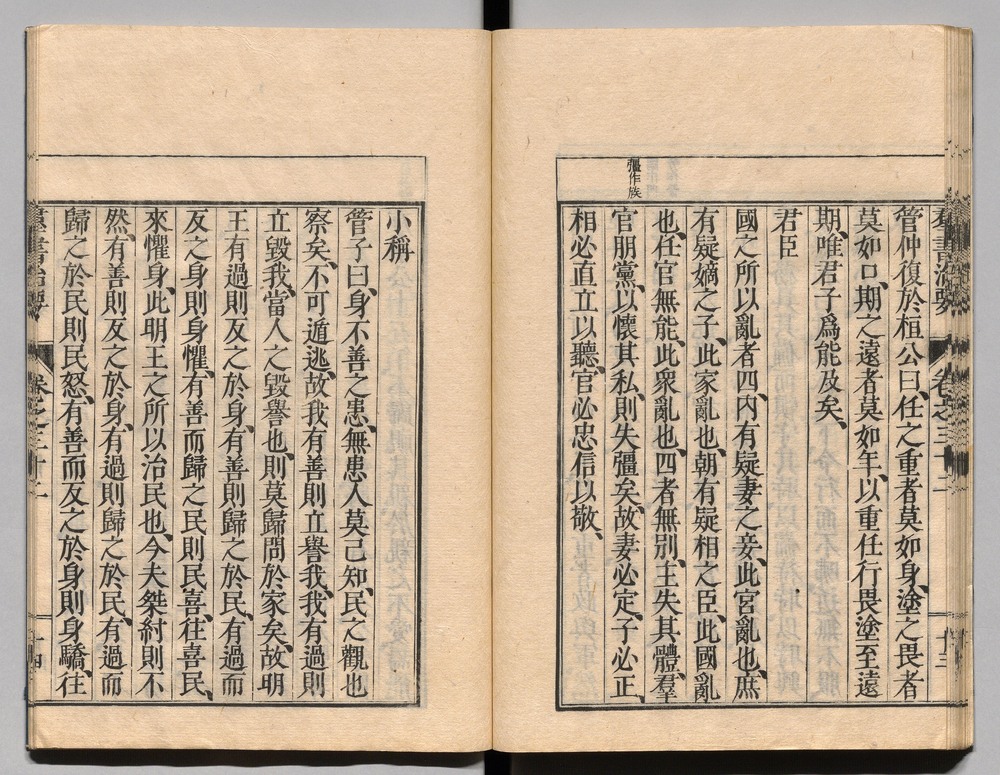 羣書治要 卷之三十二 十三
管仲復於桓公曰、任之重者莫如身、塗之畏者
莫如口、期之遠者莫如年、以重任行畏塗至遠
期、唯君子爲能及矣、
君臣
國之所以亂者四、内有疑妻之妾、此宮亂也、庶
有疑嫡之子、此家亂也、朝有疑相之臣、此國亂
也、任官無能、此衆亂也、四者無別、主失其體、羣
官朋黨、以懷其私、則失彊矣、故妻必定、子必正、
彊作族
相必直立以聽、官必忠信以敬、
小稱
管子曰、身不善之患、無患人莫己知、民之觀也
察矣、不可遁逃、故我有善則立譽我、我有過則
立毀我、當人之毀譽也、則莫歸問於家矣、故明
王有過則反之於身、有善則歸之於民、有過而
反之身則身懼、有善而歸之民則民喜、往喜民、
來懼身、此明王之所以治民也、今夫桀紂則不
然、有善則反之於身、有過則歸之於民、有過而
歸之於民則民怒、有善而反之於身則身驕、往
羣書治要 卷之三十二 十四